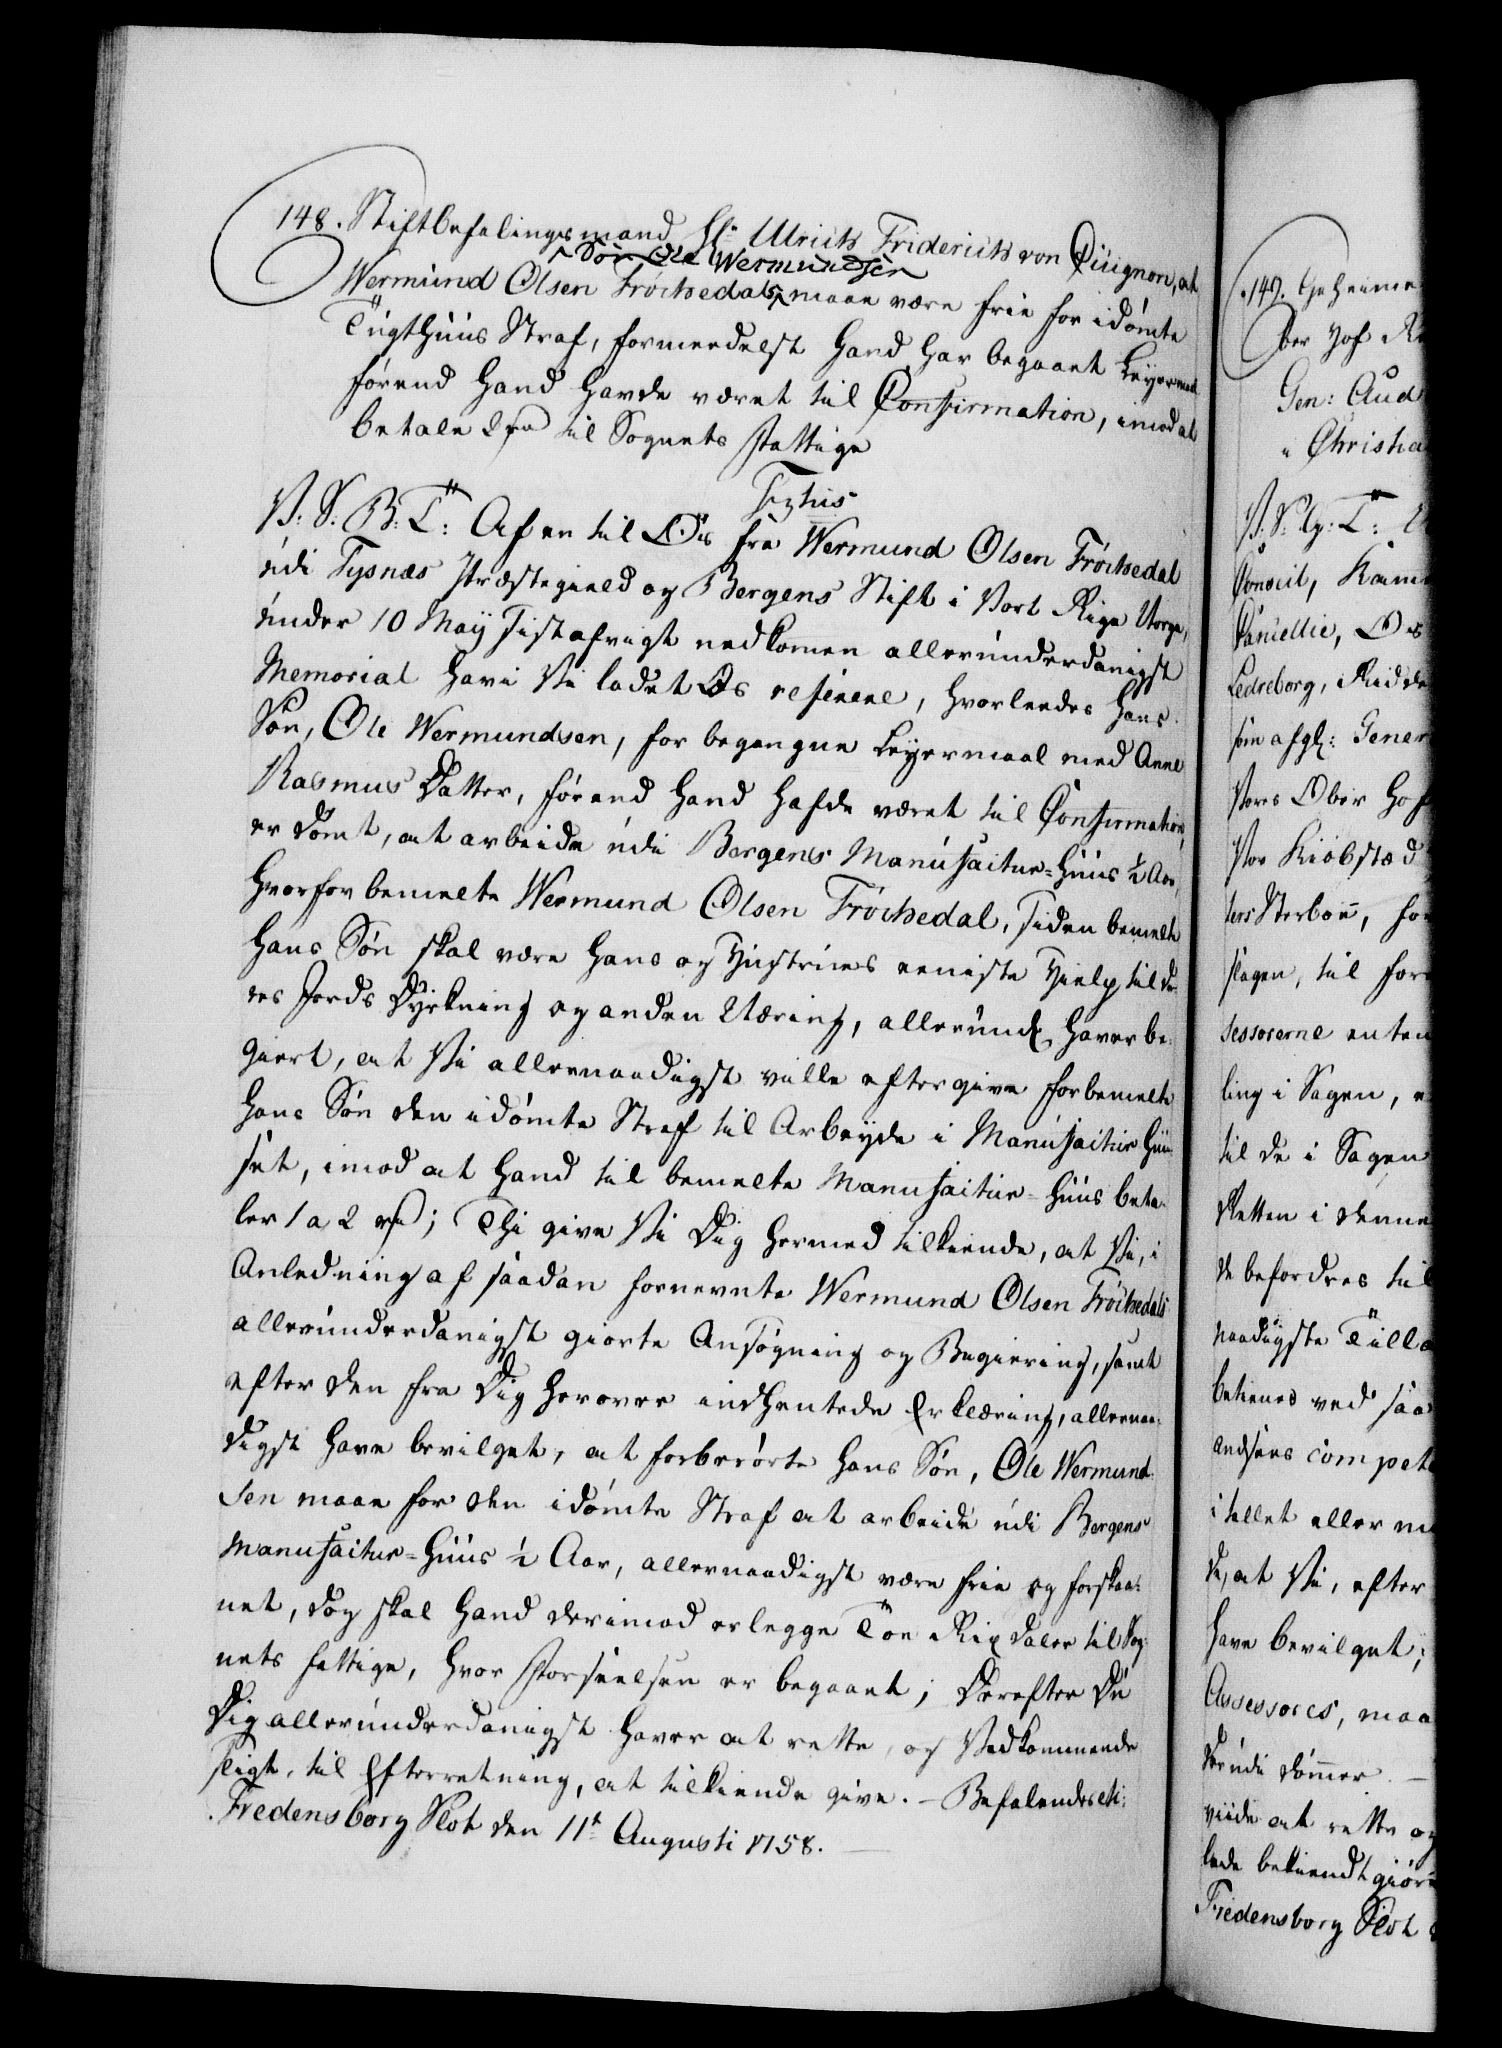 148. Stiftbefalingsmand Hr Ulrich Friderich von Cicignon, at
Søn Ole Wermundsen
Wermund Olsen Fróchedals maae være frie for idømte
Tugthuus Straf, formedelst hand har begaaet Leyermaal
førend hand havde været til Confirmation, imod at
betale 2 rd til Sognets Fattige
V: S: B: T: Af en til Os fra Wermund Olsen Fróchedal
udi Tysnæs Præstegield og Bergens Stift i Vort Rige Norge,
under 10 May sistafvigt nedkomen allerunderdanigst
Memorial have Vi ladet Os referere, hvorledes hans
Søn, Ole Wermundsen, for begangne Leyermaal med Anne
Rasmus Datter, førend hand hafde været til Confirmation,
er dømt, at arbeide udi Bergens Manufactur-Huus ½ Aar,
hvorfor bemelte Wermund Olsen Fróchedal, siden bemelte
hans Søn skal være hans og Hustrues eeniste Hielp til de-
res Jords Dyrkning og anden Næring, allerund: haver be-
giert, at Vi allernaadigst ville eftergive forbemelte
hans Søn den idømte Straf til Arbeyde i Manufactur Huu-
set, imod at hand til bemelte Manufactur-Huus beta-
ler 1 a 2 rd; Thi give Vi Dig hermed tilkiende, at Vi, i
Anledning af saadan fornevnte Wermund Olsen Fróchedals
allerunderdanigst giorte Ansøgning og Begiering, samt
efter den fra Dig herover indhentede Erklæring, allernaa-
digst have bevilget, at forberørte hans Søn, Ole Wermund-
sen maae for den idømte Straf at arbeide udi Bergens
Manufactur-Huus ½ Aar, allernaadigst være frie og forskaa-
net, dog skal hand derimod erlegge Toe Rixdaler til Sog-
nets fattige, hvor Forseelsen er begaaet; Derefter Du
Dig allerunderdanigst haver at rette, og Vedkommende
sligt, til Efterretning, at tilkiende give. - Befalendes etc:
Fredensborg Slot den 11t Augusti 1758.
147. Geheime
ber Hof Re
Gen: Aud
Christia
Concil, Kam
Cancellie, O
Ledreborg, Ridde
som afgl: Gener
Vores Ober Hof
Vor Kiøbstæd
ters Sterboe, for
slagen, til for
sessorerne enten
ling i Sagen, e
til de i Sagen
Retten i denne
de befordres til
naadigste Tilla
betienes ved saa
andsees compete
i tallet eller m
de, at Vi, efter
have bevilget;
Assessores, maa
derudi dømmer. -
viide at rette og
lede bekiendtgiøre
Fredensborg Slot